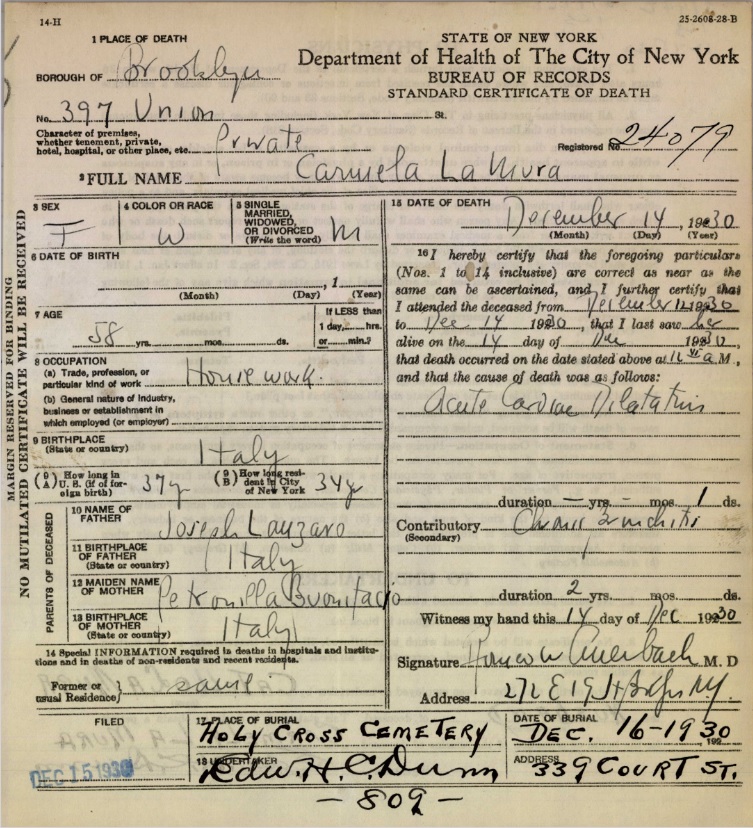 14-H
25-2608-28-B
1 PLACE OF DEATH
STATE OF NEW YORK
Department of Health of The City of New York
BUREAU OF RECORDS
STANDARD CERTIFICATE OF DEATH
BOROUGH OF Brooklyn
No. 397 Union St.
Character of premises,
whether tenement, private,
hotel, hospital, or other place, etc. Private
Registered No. 24079
2 FULL NAME Carmela La Mura
MARGIN RESERVED FOR BINDING
NO MUTILATED CERTIFICATE WILL BE RECEIVED
3 SEX
F
4 COLOR OR RACE
W
5 SINGLE
MARRIED,
WIDOWED,
OR DIVORCED
(Write the word) M
6 DATE OF BIRTH
, 1
(Month) (Day) (Year)
7 AGE
58 yrs. mos. ds.
If LESS than
1 day, hrs.
or min.?
8 OCCUPATION
(a) Trade, profession, or
particular kind of work Housework.
(b) General nature of industry,
business or establishment in
which employed (or employer)
9 BIRTHPLACE
(State or country) Italy
(9 A) How long in
U. S. (if of for-
eign birth) 37y
(9 B) How long resi-
dent in City
of New York 34y
PARENTS OF DECEASED
10 NAME OF
FATHER Joseph Lauzaro
11 BIRTHPLACE
OF FATHER
(State or country) Italy
12 MAIDEN NAME
OF MOTHER Petronilla Buonifacio
13 BIRTHPLACE
OF MOTHER
(State or country) Italy
14 Special INFORMATION required in deaths in hospitals and institu-
tions and in deaths of non-residents and recent residents.
Former or
usual Residence same
15 DATE OF DEATH
December 14, 1930
(Month) (Day) (Year)
16 I hereby certify that the foregoing particulars
(Nos. 1 to 14 inclusive) are correct as near as the
same can be ascertained, and I further certify that
I attended the deceased from December 12 1930
to Dec 14 1930, that I last saw her
alive on the 14 day of Dec 1930,
that death occurred on the date stated above at a M.,
and that the cause of death was as follows:
Acute Cardiac Dilatation
duration — yrs. - mos. 1 ds.
Contributory Chronic Bronchitis
(Secondary)
duration 2 yrs. mos. ds.
Witness my hand this 14 day of Dec 1930
Signature Auerbach M. D
Address 272 E 19 St NY.
FILED
DEC 15 1930
17 PLACE OF BURIAL
HOLY CROSS CEMETERY
DATE OF BURIAL
DEC. 16-1930, 192
18 UNDERTAKER
Edw. H. C. Dunn
ADDRESS
339 COURT ST.
- 809 -